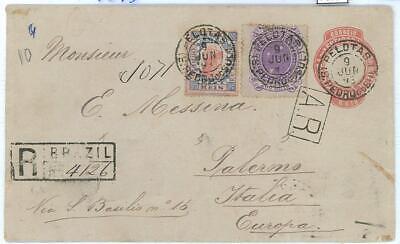 10
Monsieur
PELOTAS
9
JUN
S. PEDRO DO SUL
REIS
PELOTAS
9
JUN
S. PEDRO DO SUL
CORREIO
PELOTAS
9
JUN
93
S. PEDRO DO SUL
E. Messina
A.R
R BRAZIL
No 4126
Palermo
Italia
Via S. Basilio nº 16
Europa.